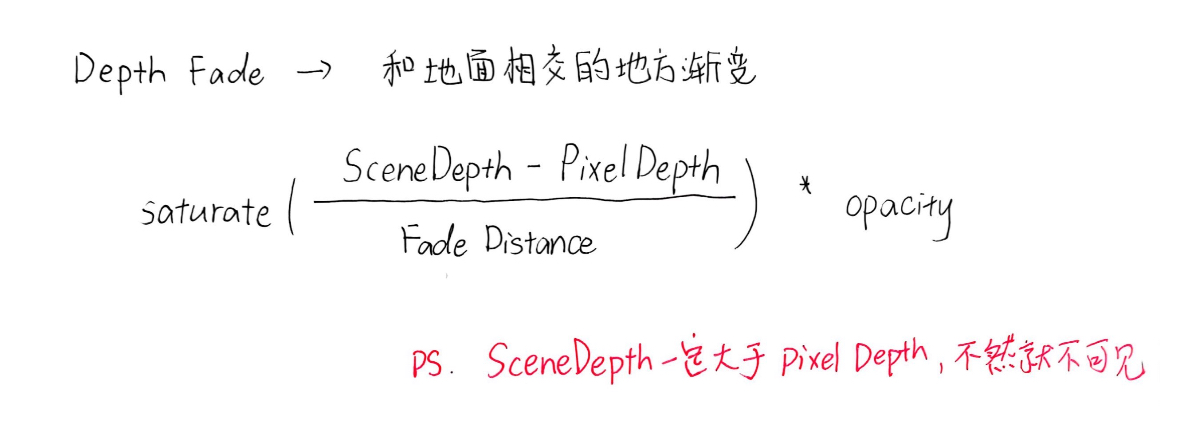 Depth Fade → 和地面相交的地方渐变
saturate ( SceneDepth - PixelDepth / Fade Distance ) * opacity
PS. SceneDepth一定大于 pixel Depth, 不然就不可见